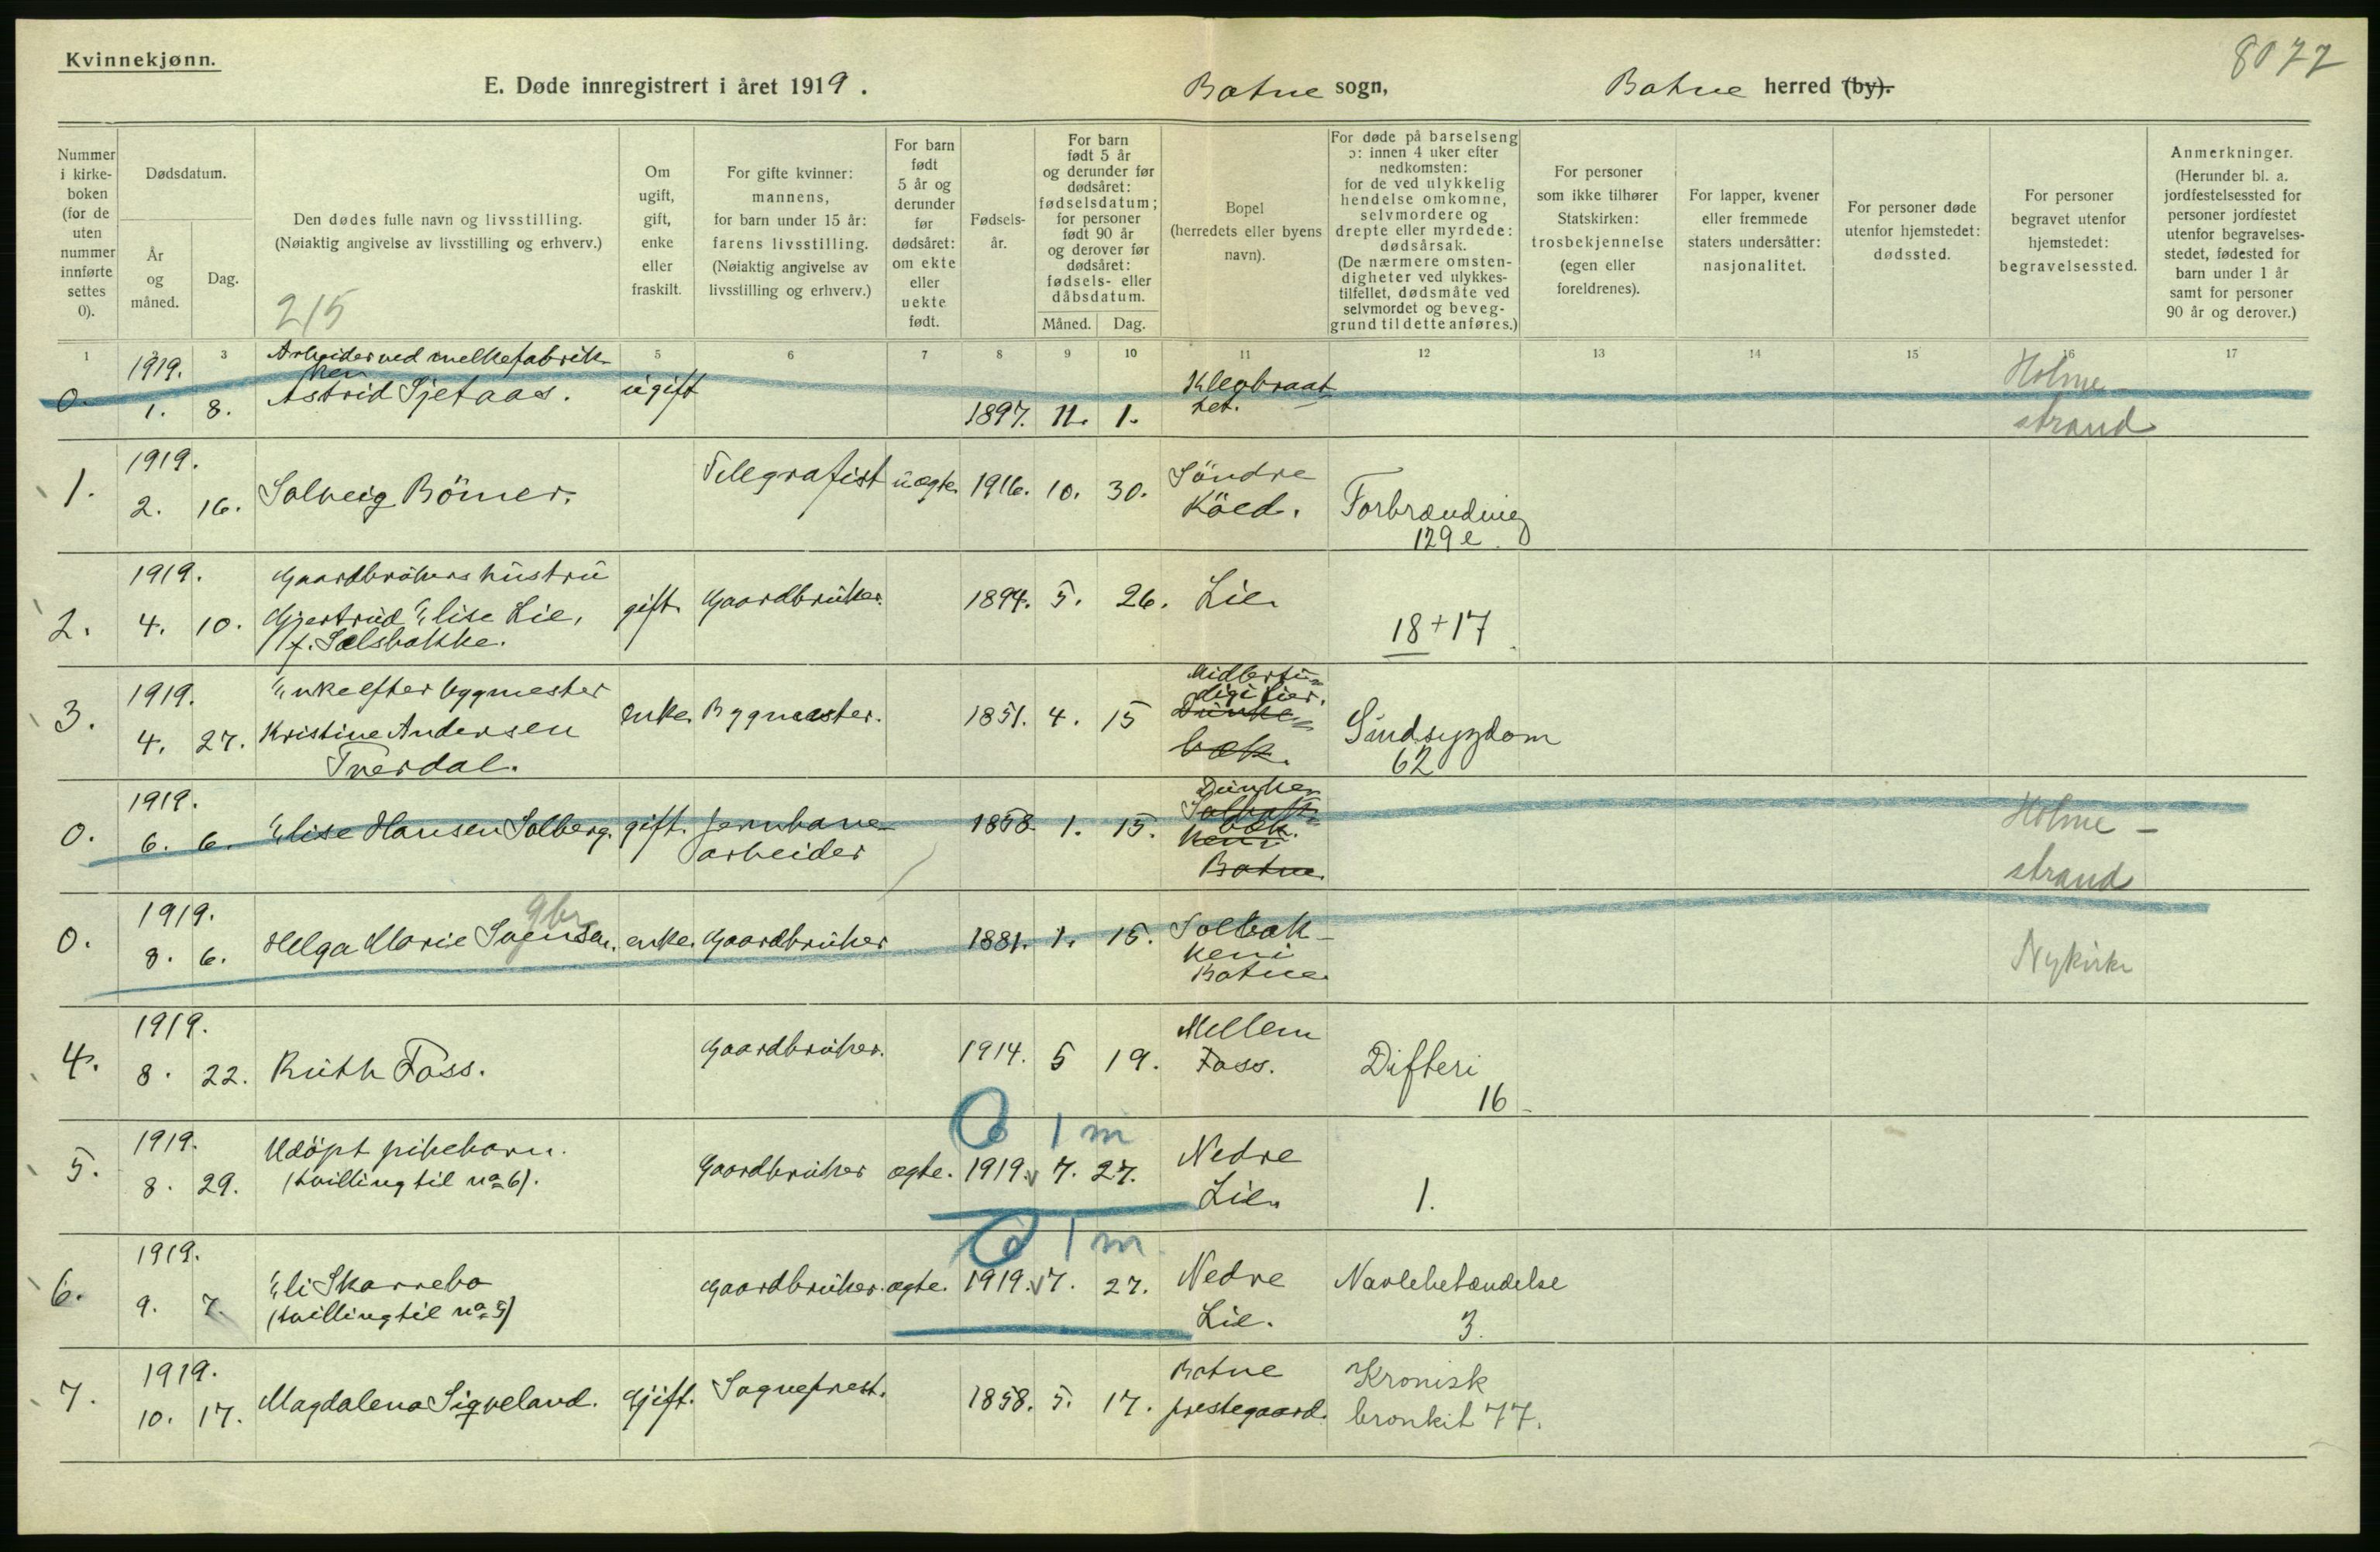 Kvinnekjønn.
8077
E. Døde innregistrert i året 1919. Botne sogn, Botne herred (by).
Nummer i kirkeboken (for de uten nummer innførte settes 0).
Dødsdatum.
År og måned.
Dag.
Den dødes fulle navn og livsstilling. (Nøiaktig angivelse av livsstilling og erhverv.)
215
Om ugift, gift, enke eller fraskilt.
For gifte kvinner: mannens, for barn under 15 år: farens livsstilling. (Nøiaktig angivelse av livsstilling og erhverv.)
For barn født 5 år og derunder før dødsåret: om ekte eller uekte født.
Fødselsår.
For barn født 5 år og derunder før dødsåret: fødselsdatum; for personer født 90 år og derover før dødsåret: fødsels- eller dåbsdatum.
Måned. Dag.
Bopel (herredets eller byens navn).
For døde på barselseng ɔ: innen 4 uker efter nedkomsten: for de ved ulykkelig hendelse omkomne, selvmordere og drepte eller myrdede: dødsårsak. (De nærmere omstendigheter ved ulykkestilfellet, dødsmåte ved selvmordet og beveggrund til dette anføres.)
For personer som ikke tilhører Statskirken: trosbekjennelse (egen eller foreldrenes).
For lapper, kvener eller fremmede staters undersåtter: nasjonalitet.
For personer døde utenfor hjemstedet: dødssted.
For personer begravet utenfor hjemstedet: begravelsessted.
Anmerkninger. (Herunder bl. a. jordfestelsessted for personer jordfestet utenfor begravelsesstedet, fødested for barn under 1 år samt for personer 90 år og derover.)
1 3 5 6 7 8 9 10 11 12 13 14 15 16 17
0. 1919. 1. 8. Arbeider ved melkefabrikken Astrid Sjetaas. ugift 1897. 11. 1. Holmestrand
1. 1919. 2. 16. Solveig Bömer. Telegrafist uægte. 1916. 10. 30. Söndre Köed. Forbrænding 129 e.
2. 1919. 4. 10. Gaardbrukers hustru Gjertrud Elise Lie, f. Solsbakke. gift. Gaardbruker. 1894. 5. 26. Lie. 18+17
3. 1919. 4. 27. Enke efter bygmester Kristine Andersen Tverdal. enke. Bygmester. 1851. 4. 15 Midlertidig i Lier. Dunkebæk. Sindsygdom 62
0. 1919. 6. 6. Elise Hansen Solberg. gift. Jernbanearbeider 1858. 1. 15. Dunkebæk. Solbakken i Botne. Holmestrand
0. 1919. 8. 6. Helga Marie Svensen. gbr enke. Gaardbruker 1881. 1. 15. Solbakken i Botne. Nykirke
4. 1919. 8. 22. Ruth Foss. Gaardbruker. 1914. 5 19. Mellem Foss. Difteri 16
5. 1919. 8. 29. Udöpt pikebarn. (tvilling til no 6). Gaardbruker ægte. 1 m 1919. 7. 27. Nedre Lie. 1.
6. 1919. 9. 7. Eli Skarrebo (tvilling til no 5) Gaardbruker. ægte. 1 m 1919. 7. 27. Nedre Lie. Navlebetændelse 3.
7. 1919. 10. 17. Magdalena Siqveland. Gjift. Sogneprest. 1858. 5. 17. Botne prestegaard. Kronisk bronkit 77.